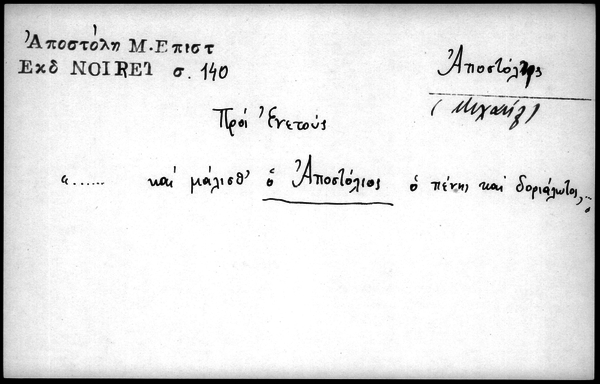 Ἀποστόλη Μ. Επιστ
Εκδ NOIRET σ. 140
Ἀποστόλης
(Μιχαήλ)
Πρός Ἐνετούς
«...... καί μάλισθ' ὁ Ἀποστόλιος ὁ πένης καί δοριάλωτος, ..»